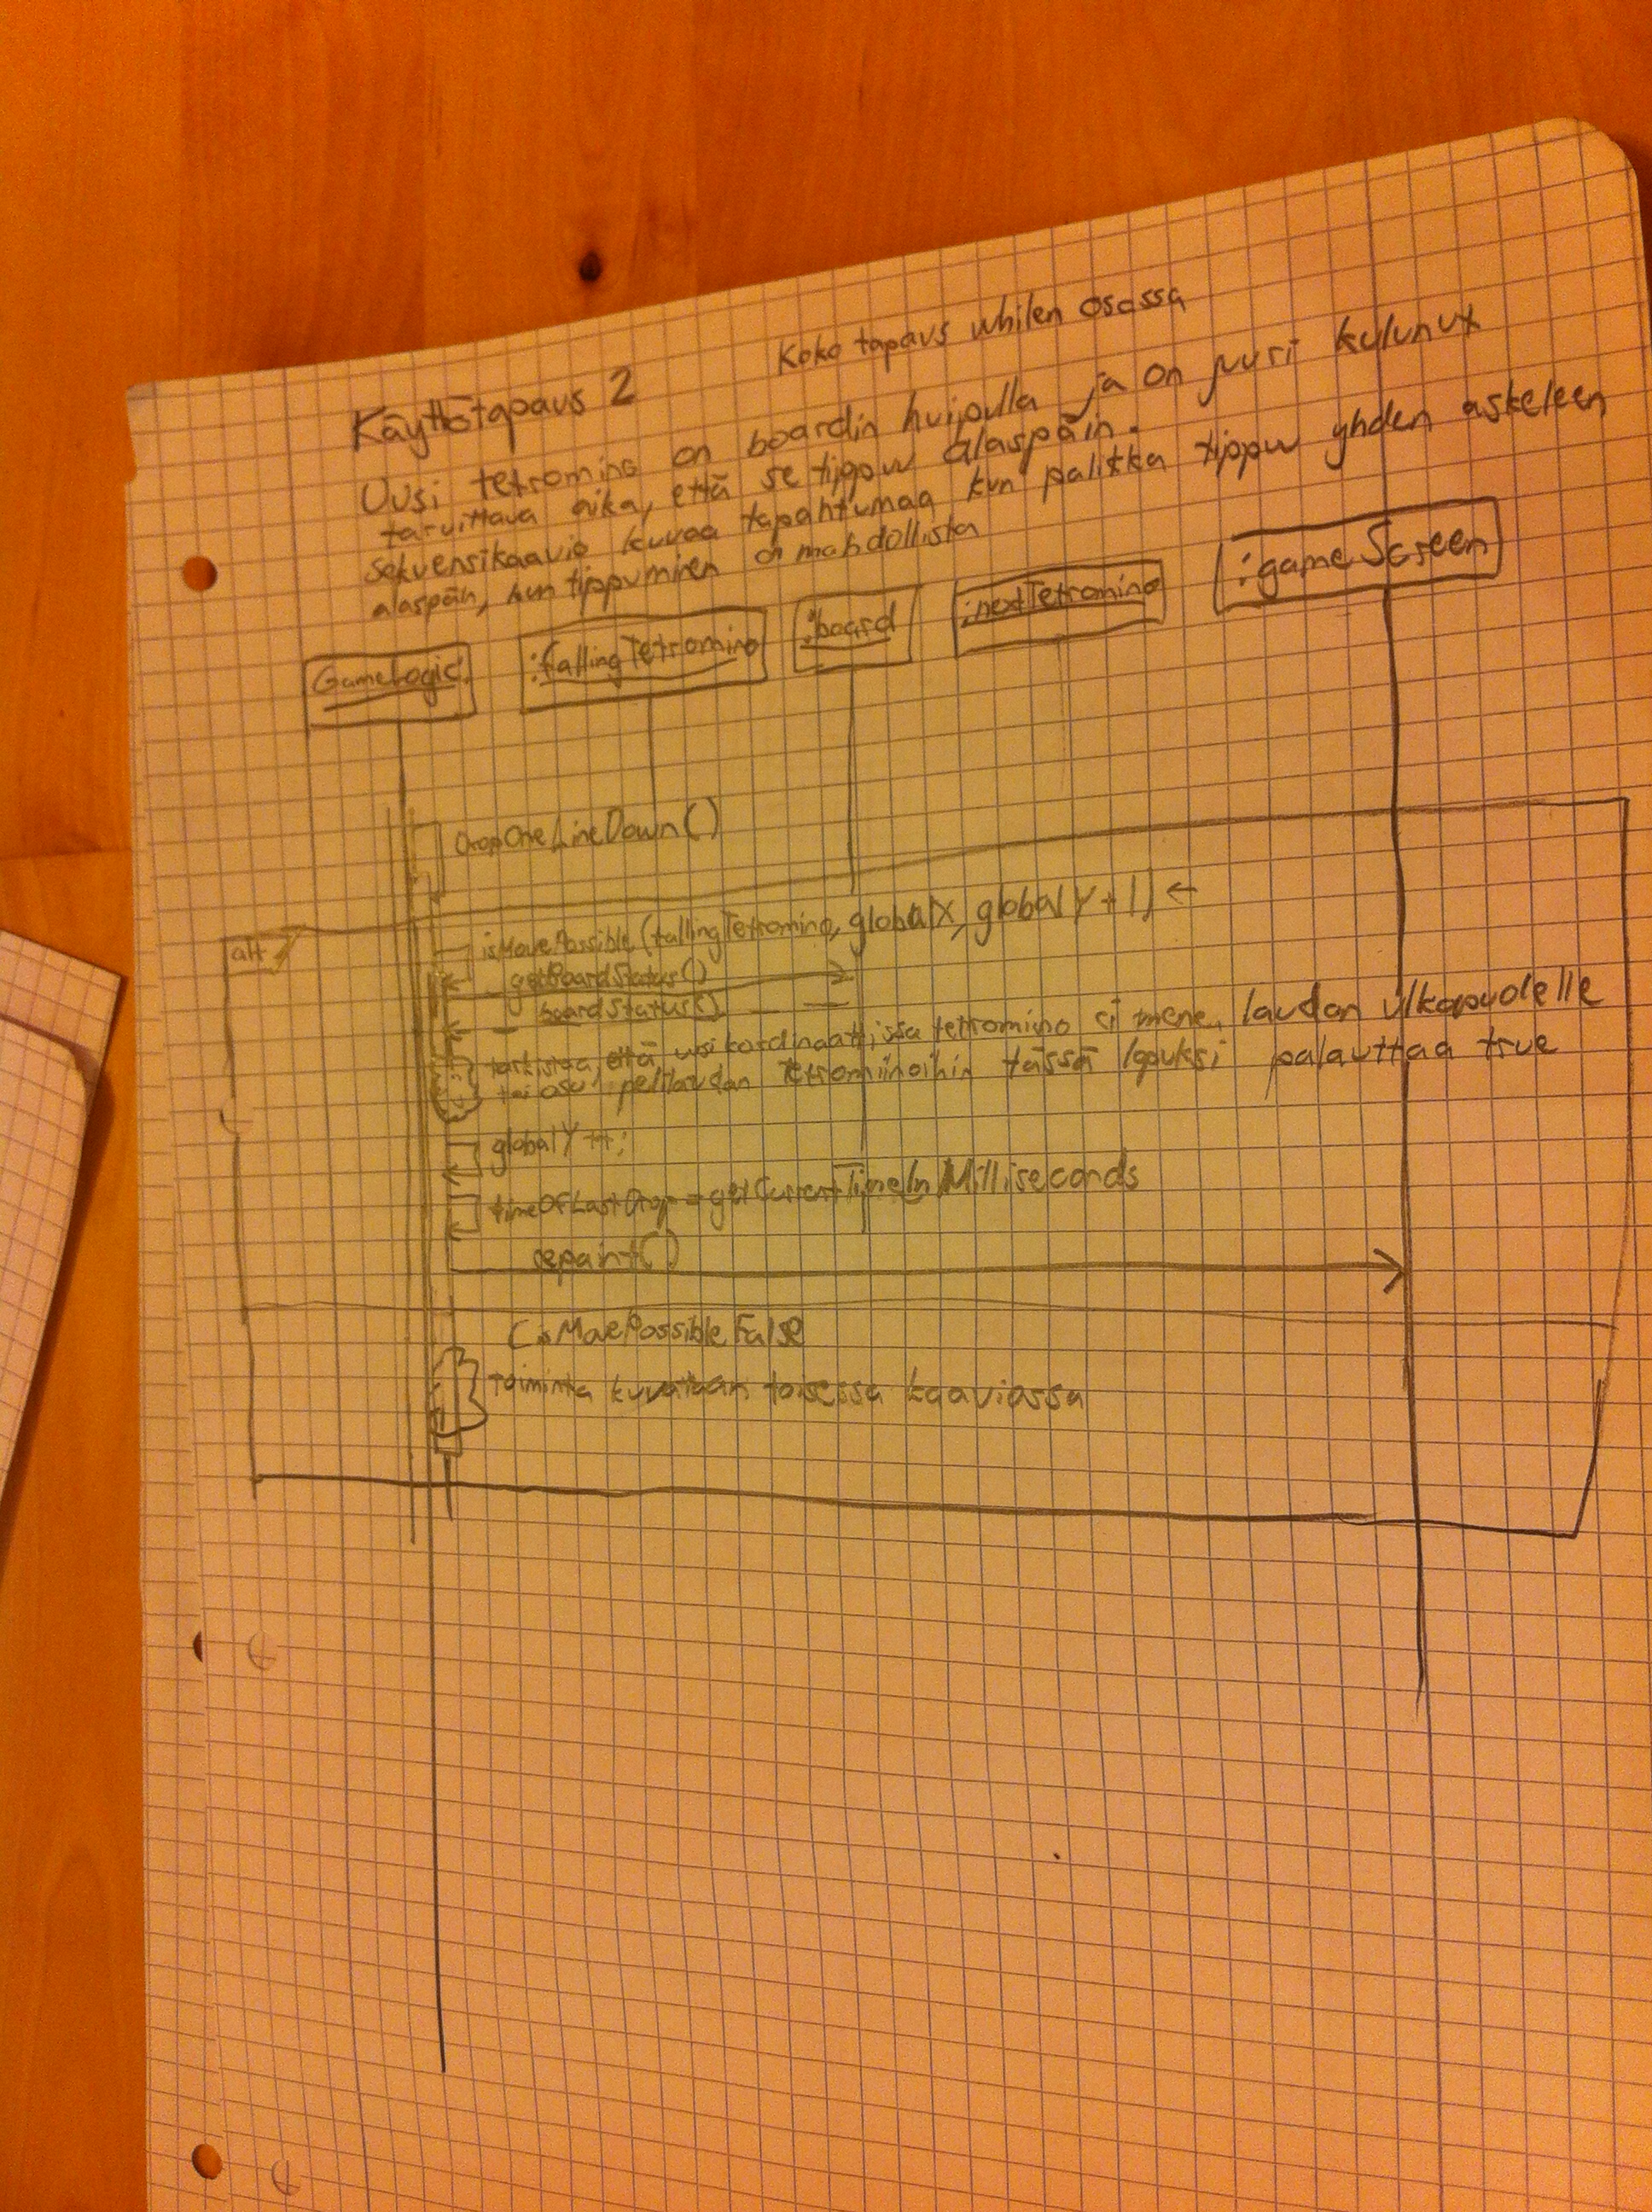 Käyttötapaus 2
Koko tapaus whilen osassa
Uusi tetromino on boardin huipulla ja on juuri kulunux
tarvittava aika, että se tippuu alaspäin.
sekvensikaavio kuvaa tapahtumaa kun palikka tippuu yhden askeleen
alaspäin, kun tippuminen on mahdollista
GameLogic: :fallingTetromino :board :nextTetromino :gameScreen
DropOneLineDown()
alt
isMovePossible(fallingTetromino, globalX, globalY+1) ←
getBoardStatus()
boardStatus()
tarkistaa, että uusi kordinaattissa tetromino ei mene laudan ulkopuolelle
tai osu pelilaudan tetrominoihin tässä lopuksi palauttaa true
globalY++;
timeOfLastDrop = getCurrentTimeInMilliseconds
repaint()
(isMovePossible False
Toiminta kuvataan toisessa kaaviossa